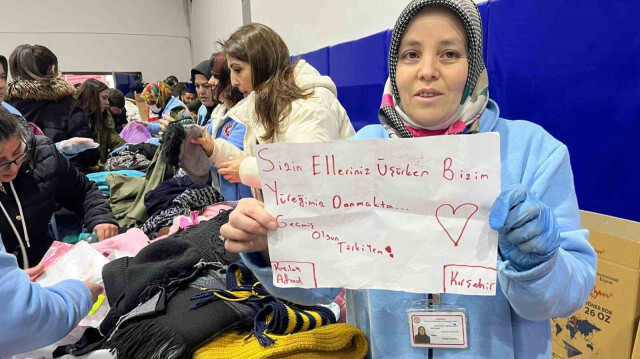 Sizin Elleriniz Üşürken Bizim
Yüreğimiz Donmakta...
Geçmiş
Olsun Türkiyem!
Afad
Kırşehir
26 OZ